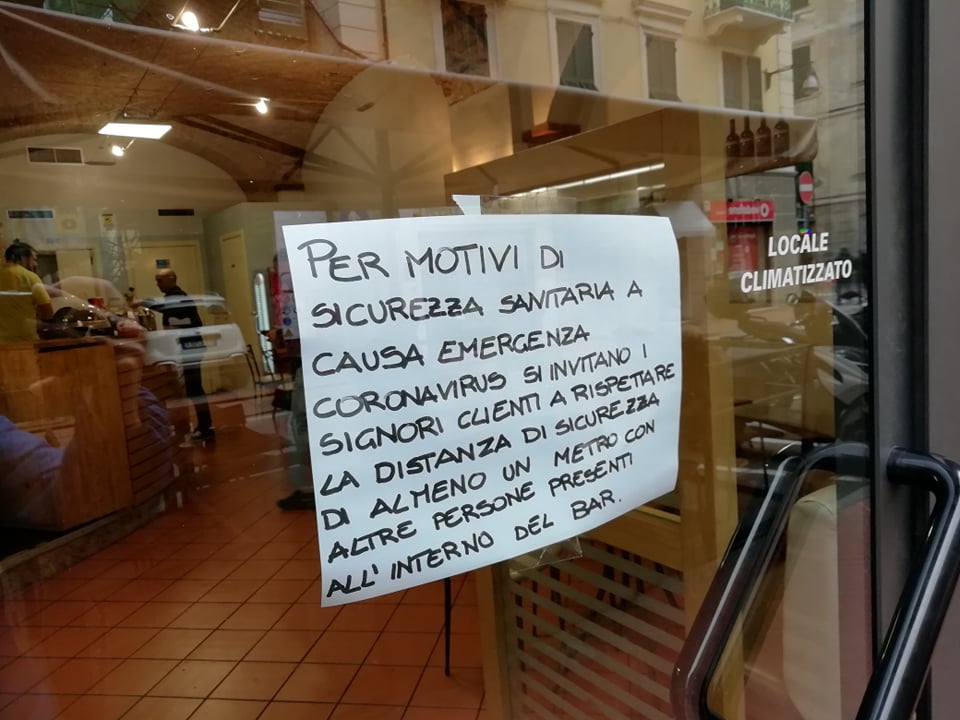 PER MOTIVI DI
SICUREZZA SANITARIA A
CAUSA EMERGENZA
CORONAVIRUS SI INVITANO I
SIGNORI CLIENTI A RISPETTARE
LA DISTANZA DI SICUREZZA
DI ALMENO UN METRO CON
ALTRE PERSONE PRESENTI
ALL'INTERNO DEL BAR.
LOCALE
CLIMATIZZATO